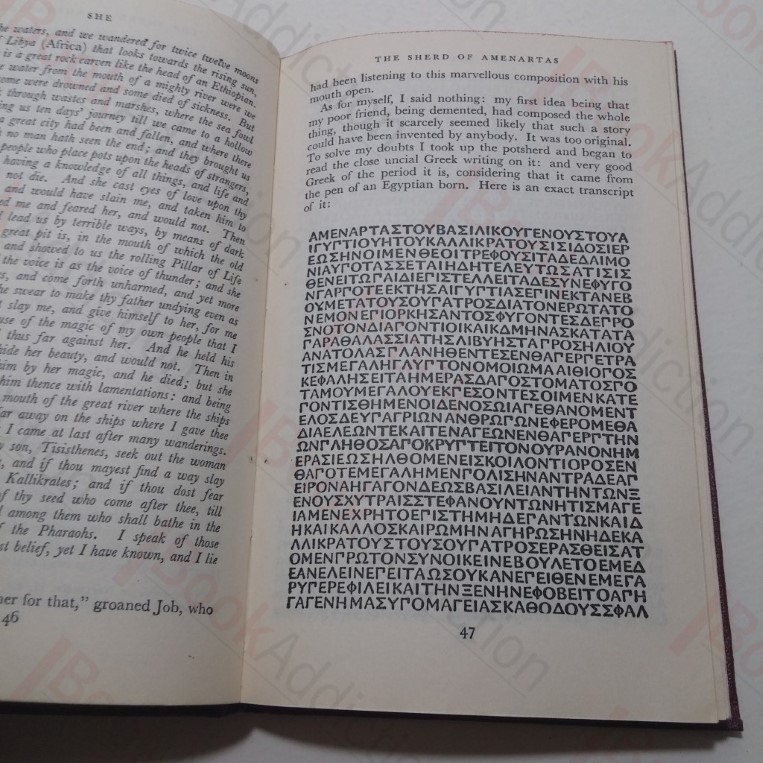 SHE
the waters, and we wandered for twice twelve moons
Libya (Africa) that looks towards the rising sun,
is a great rock carven like the head of an Ethiopian.
water from the mouth of a mighty river were we
ome were drowned and some died of sickness. But
through wastes and marshes, where the sea fowl
ng us ten days' journey till we came to a hollow
a great city had been and fallen, and where there
h no man hath seen the end; and they brought us
people who place pots upon the heads of strangers,
having a knowledge of all things, and life and
not die. And she cast eyes of love upon thy
and would have slain me, and taken him to
ed me and feared her, and would not. Then
lead us by terrible ways, by means of dark
great pit is, in the mouth of which the old
and showed to us the rolling Pillar of Life
the voice is as the voice of thunder; and she
es, and come forth unharmed, and yet more
he swear to make thy father undying even as
slay me, and give himself to her, for me
use of the magic of my own people that I
thus far against her. And he held his
hide her beauty, and would not. Then in
im by her magic, and he died; but she
him thence with lamentations: and being
mouth of the great river where the ships
far away on the ships where I gave thee
I came at last after many wanderings.
y son, Tisisthenes, seek out the woman
, and if thou mayest find a way slay
Kallikrates; and if thou dost fear
of thy seed who come after thee, till
among them who shall bathe in the
f the Pharaohs. I speak of those
st belief, yet I have known, and I lie
her for that," groaned Job, who
46
THE SHERD OF AMENARTAS
had been listening to this marvellous composition with his
mouth open.
As for myself, I said nothing: my first idea being that
my poor friend, being demented, had composed the whole
thing, though it scarcely seemed likely that such a story
could have been invented by anybody. It was too original.
To solve my doubts I took up the potsherd and began to
read the close uncial Greek writing on it: and very good
Greek of the period it is, considering that it came from
the pen of an Egyptian born. Here is an exact transcript
of it:
ΑΜΕΝΑΡΤΑΣΤΟΥΒΑΣΙΛΙΚΟΥΓΕΝΟΥΣΤΟΥΑ
ΙΓΥΠΤΙΟΥΗΤΟΥΚΑΛΛΙΚΡΑΤΟΥΣΙΣΙΔΟΣΙΕΡ
ΕΩΣΗΝΟΙΜΕΝΘΕΟΙΤΡΕΦΟΥΣΙΤΑΔΕΔΑΙΜΟ
ΝΙΑΥΠΟΤΑΣΣΕΤΑΙΗΔΗΤΕΛΕΥΤΩΣΑΤΙΣΙΣ
ΘΕΝΕΙΤΩΠΑΙΔΙΕΠΙΣΤΕΛΛΕΙΤΑΔΕΣΥΝΕΦΥΓΟ
ΝΓΑΡΠΟΤΕΕΚΤΗΣΑΙΓΥΠΤΙΑΣΕΠΙΝΕΚΤΑΝΕΒ
ΟΥΜΕΤΑΤΟΥΣΟΥΠΑΤΡΟΣΔΙΑΤΟΝΕΡΩΤΑΤΟ
ΝΕΜΟΝΕΠΙΟΡΚΗΣΑΝΤΟΣΦΥΓΟΝΤΕΣΔΕΠΡΟ
ΣΝΟΤΟΝΔΙΑΠΟΝΤΙΟΙΚΑΙΚΔΜΗΝΑΣΚΑΤΑΤΑ
ΠΑΡΑΘΑΛΑΣΣΙΑΤΗΣΛΙΒΥΗΣΤΑΠΡΟΣΗΛΙΟΥ
ΑΝΑΤΟΛΑΣΠΛΑΝΗΘΕΝΤΕΣΕΝΘΑΠΕΡΠΕΤΡΑ
ΤΙΣΜΕΓΑΛΗΓΛΥΠΤΟΝΟΜΟΙΩΜΑΑΙΘΙΟΠΟΣ
ΚΕΦΑΛΗΣΕΙΤΑΗΜΕΡΑΣΔΑΠΟΣΤΟΜΑΤΟΣΠΟ
ΤΑΜΟΥΜΕΓΑΛΟΥΕΚΠΕΣΟΝΤΕΣΟΙΜΕΝΚΑΤΕ
ΠΟΝΤΙΣΘΗΜΕΝΟΙΔΕΝΟΣΩΙΑΠΕΘΑΝΟΜΕΝΤ
ΕΛΟΣΔΕΥΠΑΓΡΙΩΝΑΝΘΡΩΠΩΝΕΦΕΡΟΜΕΘΑ
ΔΙΑΕΛΕΩΝΤΕΚΑΙΤΕΝΑΓΕΩΝΕΝΘΑΠΕΡΠΤΗΝ
ΩΝΠΛΗΘΟΣΑΠΟΚΡΥΠΤΕΙΤΟΝΟΥΡΑΝΟΝΗΜ
ΕΡΑΣΙΕΩΣΗΛΘΟΜΕΝΕΙΣΚΟΙΛΟΝΤΙΟΡΟΣΕΝ
ΘΑΠΟΤΕΜΕΓΑΛΗΜΕΝΠΟΛΙΣΗΝΑΝΤΡΑΔΕΑΠ
ΕΙΡΟΝΑΗΓΑΓΟΝΔΕΩΣΒΑΣΙΛΕΙΑΝΤΗΝΤΩΝΞ
ΕΝΟΥΣΧΥΤΡΑΙΣΣΤΕΦΑΝΟΥΝΤΩΝΗΤΙΣΜΑΓΕ
ΙΑΜΕΝΕΧΡΗΤΟΕΠΙΣΤΗΜΗΔΕΠΑΝΤΩΝΚΑΙΔ
ΗΚΑΙΚΑΛΛΟΣΚΑΙΡΩΜΗΝΑΓΗΡΩΣΗΝΗΔΕΚΑ
ΛΛΙΚΡΑΤΟΥΣΤΟΥΣΟΥΠΑΤΡΟΣΕΡΑΣΘΕΙΣΑΤ
ΟΜΕΝΠΡΩΤΟΝΣΥΝΟΙΚΕΙΝΕΒΟΥΛΕΤΟΕΜΕΔ
ΕΑΝΕΛΕΙΝΕΠΕΙΤΑΩΣΟΥΚΑΝΕΠΕΙΘΕΝΕΜΕΓΑ
ΡΥΠΕΡΕΦΙΛΕΙΚΑΙΤΗΝΞΕΝΗΝΕΦΟΒΕΙΤΟΑΠΗ
ΓΑΓΕΝΗΜΑΣΥΠΟΜΑΓΕΙΑΣΚΑΘΟΔΟΥΣΣΦΑΛ
47